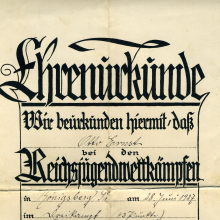 Ehrenurkunde
Wir beurkunden hiermit, daß
Otto Ernst
bei den
Reichsjugendwettkämpfen
in Königsberg Pr am 28. Juni 1927
im Dreikampf 53 Punkte